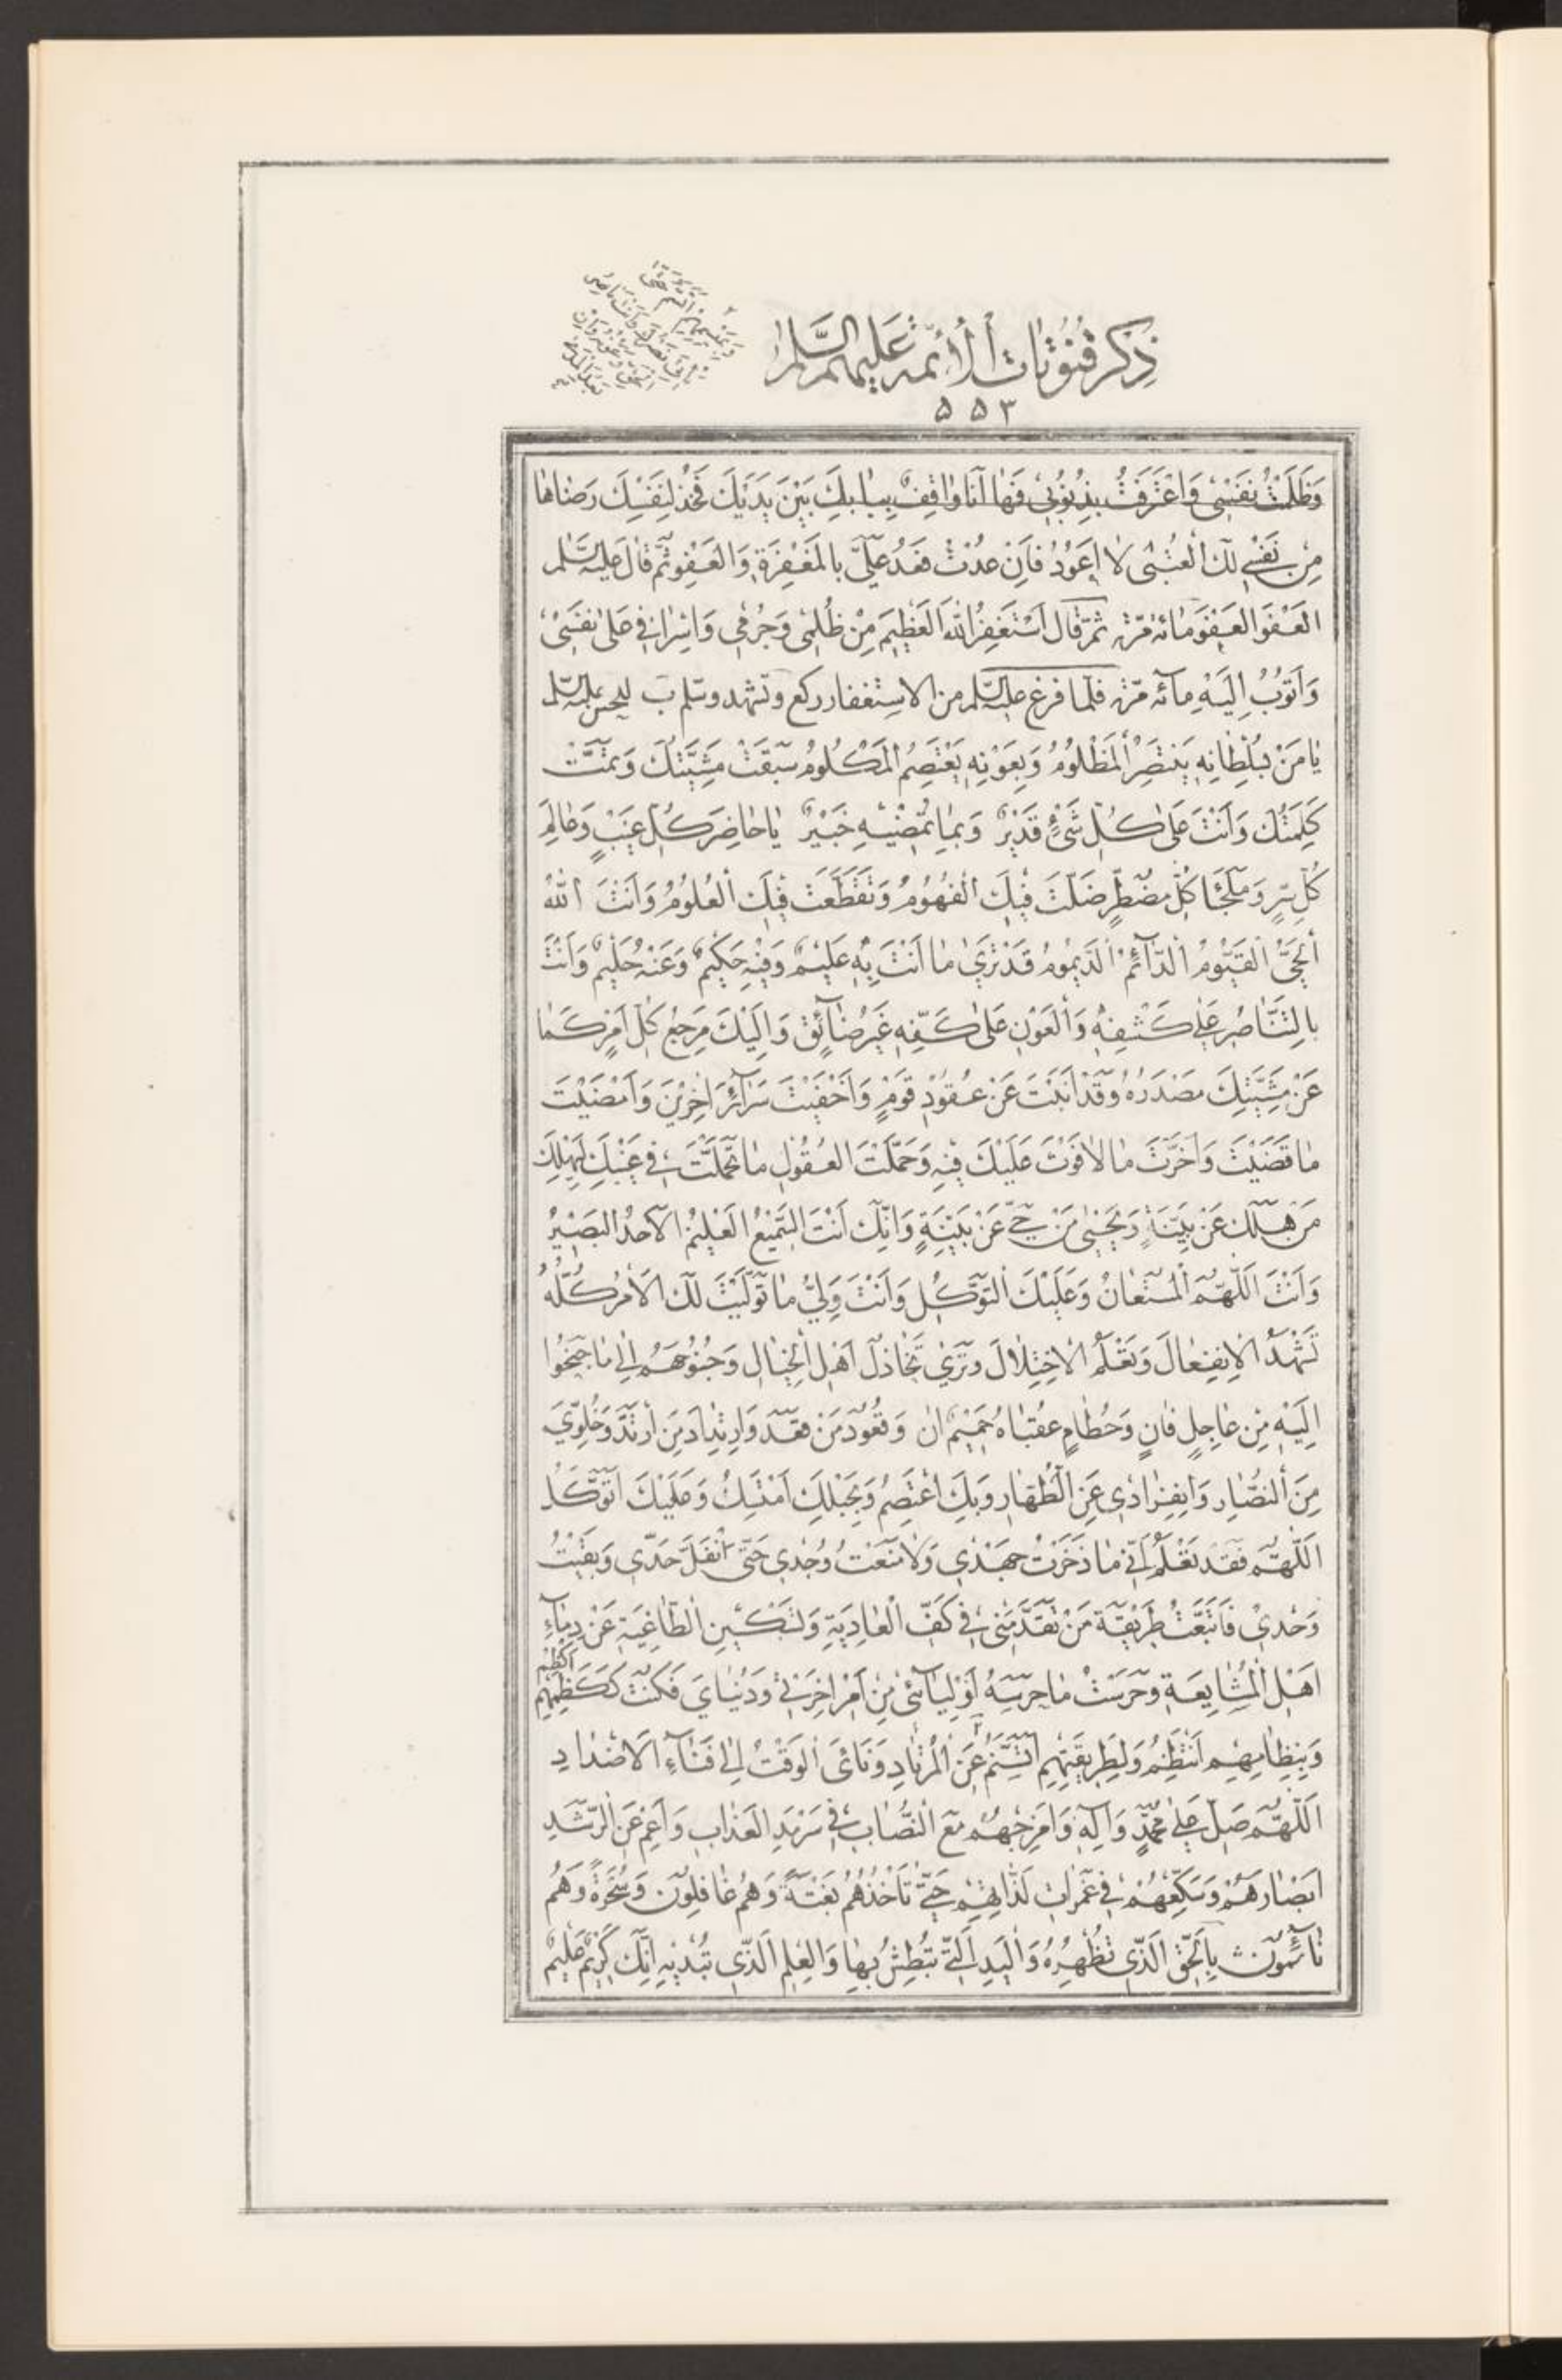 ذِكْرِ قُنُوتَاتِ الْأَئِمَّةِ عَلَيْهِمُ السَّلَامُ
٥٥٣
وَظَلَمْتُ نَفْسِي وَاعْتَرَفْتُ بِذُنُوبِي فَهَا أَنَا وَاقِفٌ بِبَابِكَ بَيْنَ يَدَيْكَ فَخُذْ لِنَفْسِكَ رِضَاهَا
مِنْ نَفْسِي لَكَ الْعُتْبَى لَا أَعُودُ فَإِنْ عُدْتُ فَعُدْ عَلَيَّ بِالْمَغْفِرَةِ وَالْعَفْوِ ثُمَّ قَالَ عَلَيْهِ السَّلَام
الْعَفْوَ الْعَفْوَ مِائَةَ مَرَّةٍ ثُمَّ قَالَ أَسْتَغْفِرُ اللَّهَ الْعَظِيمَ مِنْ ظُلْمِي وَجُرْمِي وَإِسْرَافِي عَلَى نَفْسِي
وَأَتُوبُ إِلَيْهِ مِائَةَ مَرَّةٍ فَلَمَّا فَرَغَ عَلَيْهِ السَّلَام مِنَ الِاسْتِغْفَارِ رَكَعَ وَتَشَهَّدَ وَسَلَّمَ
يَا مَنْ بِسُلْطَانِهِ يَنْتَصِرُ الْمَظْلُومُ وَبِعَوْنِهِ يَعْتَصِمُ الْمَكْلُومُ سَبَقَتْ مَشِيَّتُكَ وَتَمَّتْ
كَلِمَتُكَ وَأَنْتَ عَلَى كُلِّ شَيْءٍ قَدِيرٌ وَبِمَا تُمْضِيهِ خَبِيرٌ يَا حَاضِرَ كُلِّ غَيْبٍ وَعَالِمَ
كُلِّ سِرٍّ وَمَلْجَأَ كُلِّ مُضْطَرٍّ ضَلَّتْ فِيكَ الْفُهُومُ وَتَقَطَّعَتْ فِيكَ الْعُلُومُ وَأَنْتَ اللَّهُ
الْحَيُّ الْقَيُّومُ الدَّائِمُ الدَّيْمُومُ قَدْ تَرَى مَا أَنْتَ بِهِ عَلِيمٌ وَفِيهِ حَكِيمٌ وَعَنْهُ حَلِيمٌ وَأَنْتَ
بِالتَّنَاصُرِ عَلَى كَشْفِهِ وَالْعَوْنِ عَلَى كَفِّهِ غَيْرُ ضَائِقٍ وَإِلَيْكَ مَرْجِعُ كُلِّ أَمْرٍ كَمَا
عَنْ مَشِيَّتِكَ مَصْدَرُهُ وَقَدْ أَبَنْتَ عَنْ عُقُودِ قَوْمٍ وَأَخْفَيْتَ سَرَائِرَ آخَرِينَ وَأَمْضَيْتَ
مَا قَضَيْتَ وَأَخَّرْتَ مَا لَا فَوْتَ عَلَيْكَ فِيهِ وَحَمَّلْتَ الْعُقُولَ مَا تَحَمَّلَتْ فِي غَيْبِكَ لِيَهْلِكَ
مَنْ هَلَكَ عَنْ بَيِّنَةٍ وَيَحْيَى مَنْ حَيَّ عَنْ بَيِّنَةٍ وَإِنَّكَ أَنْتَ السَّمِيعُ الْعَلِيمُ الْأَحَدُ الْبَصِيرُ
وَأَنْتَ اللَّهُمَّ الْمُسْتَعَانُ وَعَلَيْكَ التَّوَكُّلُ وَأَنْتَ وَلِيُّ مَا تَوَلَّيْتَ لَكَ الْأَمْرُ كُلُّهُ
تَشْهَدُ الِانْفِعَالَ وَتَعْلَمُ الِاخْتِلَالَ وَتَرَى تَخَاذُلَ أَهْلِ الْخَبَالِ وَجُنُوحَهُمْ إِلَى مَا جَنَحُوا
إِلَيْهِ مِنْ عَاجِلٍ فَانٍ وَحُطَامٍ عُقْبَاهُ حَمِيمٌ آنٍ وَقُعُودَ مَنْ قَعَدَ وَارْتِدَادَ مَنِ ارْتَدَّ وَخُلُوِّي
مِنَ النُّصَّارِ وَانْفِرَادِي عَنِ الظُّهَّارِ وَبِكَ أَعْتَصِمُ وَبِحَبْلِكَ أَسْتَمْسِكُ وَعَلَيْكَ أَتَوَكَّلُ
اللَّهُمَّ فَقَدْ تَعْلَمُ أَنِّي مَا ذَخَرْتُ جَهْدِي وَلَا مَنَعْتُ وُجْدِي حَتَّى انْفَلَّ حَدِّي وَبَقِيتُ
وَحْدِي فَاتَّبَعْتُ طَرِيقَةَ مَنْ تَقَدَّمَنِي فِي كَفِّ الْعَادِيَةِ وَتَسْكِينِ الطَّاغِيَةِ عَنْ دِمَاءِ
أَهْلِ الْمُشَايَعَةِ وَحَرَسْتُ مَا حَرَسَهُ أَوْلِيَائِي مِنْ أَمْرِ آخِرَتِي وَدُنْيَايَ فَكُنْتُ كَكَظْمِهِمْ أَكْظِمُ
وَبِنِظَامِهِمْ أَنْتَظِمُ وَلِطَرِيقَتِهِمْ أَتَسَنَّمُ
اللَّهُمَّ صَلِّ عَلَى مُحَمَّدٍ وَآلِهِ وَامْزِجْهُمْ مَعَ النُّصَّابِ فِي سَرْمَدِ الْعَذَابِ وَأَعْمِ عَنِ الرُّشْدِ
أَبْصَارَهُمْ وَسَكِّعْهُمْ فِي غَمَرَاتِ لَذَّاتِهِمْ حَتَّى تَأْخُذَهُمْ بَغْتَةً وَهُمْ غَافِلُونَ وَسُحْرَةً وَهُمْ
نَائِمُونَ بِالْحَقِّ الَّذِي تُظْهِرُهُ وَالْيَدِ الَّتِي تَبْطِشُ بِهَا وَالْعِلْمِ الَّذِي تُبْدِيهِ إِنَّكَ كَرِيمٌ عَلِيمٌ